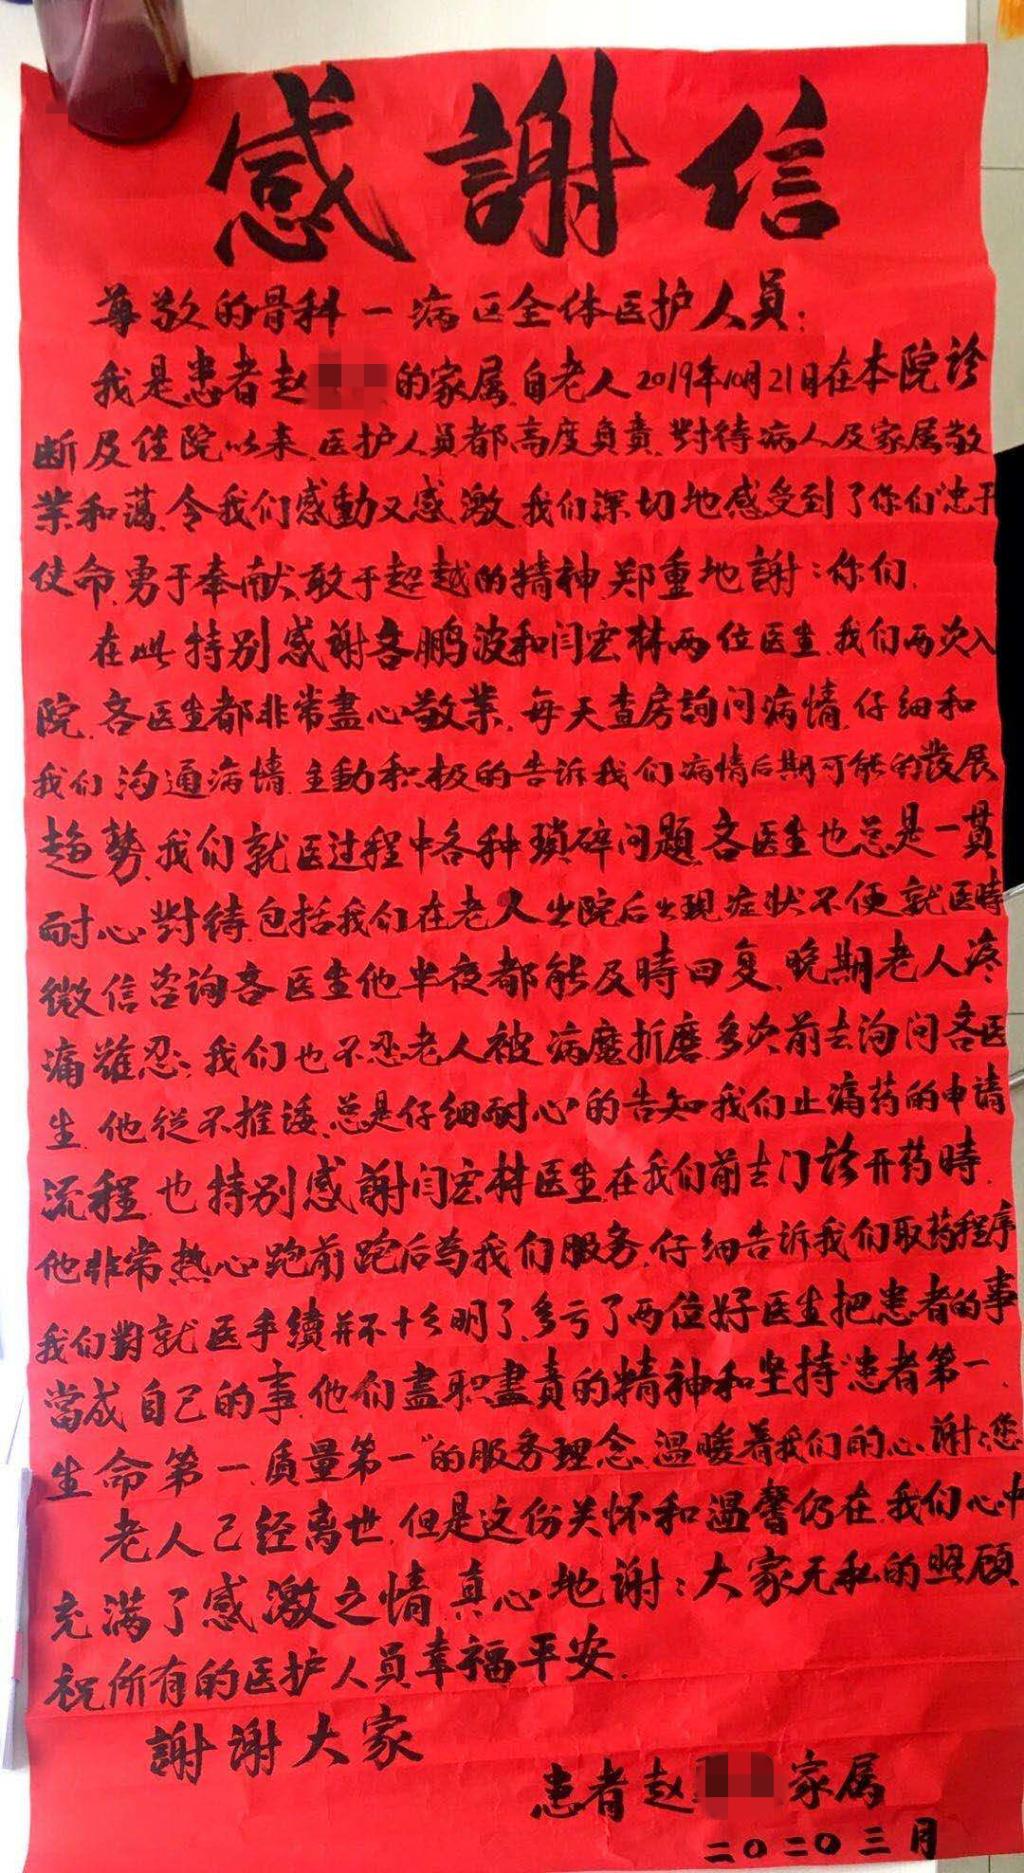 感謝信
尊敬的骨科一病区全体医护人員:
我是患者赵的家属.自老人2019年10月21日在本院诊
断及住院以来.医护人員都高度負責.對待病人及家属敬
業和蔼.令我们感動又感激.我们深切地感受到了你们忠于
使命.勇于奉献.敢于超越的精神.郑重地謝:你们.
在此特别感谢吝鹏波和闫宏林两位医生.我们两次入
院.吝医生都非常盡心敬業.每天查房詢问病情.仔细和
我们沟通病情.主動积极的告诉我们病情后期可能的發展
趋势.我们就医过程中各种琐碎问題.吝医生也总是一貫
耐心對待.包括我们在老人出院后出現症状不便就医時
微信咨询吝医生他半夜都能及時回复.晚期老人疼
痛难忍;我们也不忍老人被病魔折磨.多次前去询问吝医
生.他從不推诿.总是仔细耐心的告知我们止痛药的申请
流程.也特别感謝闫宏林医生.在我们前去门诊开药時.
他非常热心跑前跑后為我们服务.仔细告诉我们取药程序
我们對就医手續并不十分明了.多亏了两位好医生把患者的事
當成自己的事.他们盡职盡責的精神和坚持“患者第一.
生命第一.质量第一”的服务理念.温暖着我们的心.谢:您
老人已经离世.但是这份关怀和温馨仍在.我们心中
充满了感激之情.真心地谢:大家无私的照顾
祝所有的医护人員幸福平安.
謝谢大家
患者赵家属
二〇二〇三月